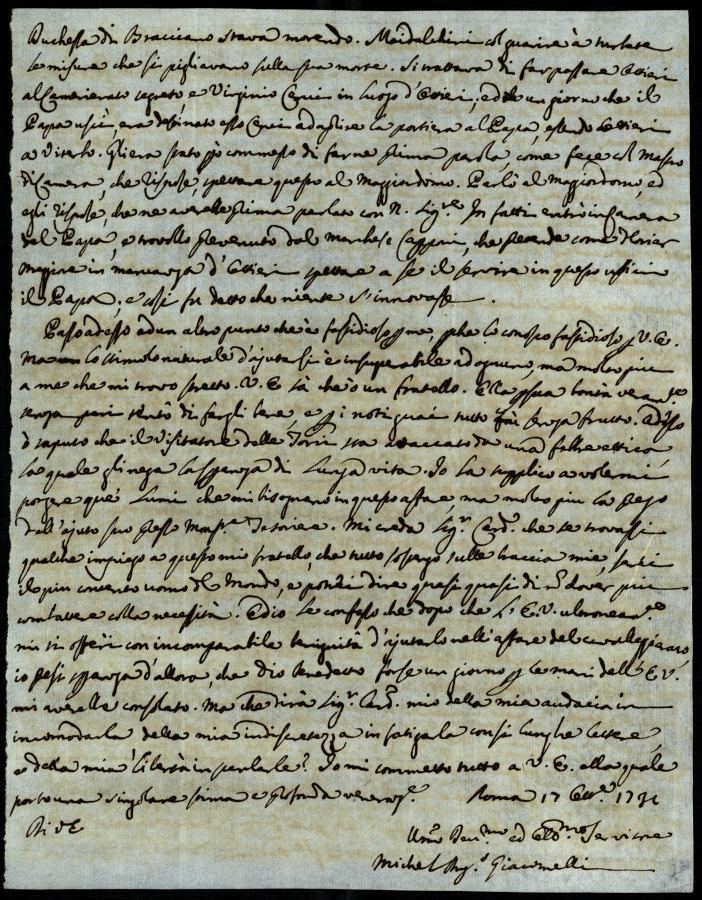 Duchessa di Bracciano stava morendo. Maidalchini col guarire à turbate
le misure che si pigliavano sulla sua morte. Si trattava di far passare Ottieri
al Camerierato segreto, e Virginio Cenci in luogo d'Ottieri, ed un giorno che il
Papa uscì, era destinato esso Cenci ad aprire la portiera al Papa, essendo Ottieri
a Viterbo. Gli era stato già commesso di farne prima parola, come fece col Mastro
di Camera, che rispose, spettare questo al Maggiordomo. Parlò al Maggiordomo, ed
egli rispose, che ne averebbe prima parlato con N. Sig.re In fatti entrò in Camera
del Papa, e trovollo prevenuto dal Marchese Cappini, che pretende come Forier
Maggiore in mancanza d'Ottieri spettare a se il servire in questo ufficio
il Papa; e così fu detto che niente s'innovasse.
Passo adesso ad un altro punto che è fastidioso p me, pche lo conosco fastidioso p V.E.
Ma lo stimolo naturale d'ajutarsi è insuperabile ad ognuno, ma molto piu
a me che mi trovo stretto. V.E. sà che ò un fratello. Ella p sua bontà
tentò di fargli bene, e p i noti guai tutto fù senza frutto. Adesso
ò saputo che il Visitatore delle Torri sta attaccato da una febbre ettica
la quale gli nega la speranza di lunga vita. Io la supplico a volermi
porgere que' lumi che mi bisognano in questo affare, ma molto piu la prego
dell'ajuto suo presso Mons.re Tesoriere. Mi creda Sig.r Card. che se trovassi
qualche impiego a questo mio fratello, che tutto posa sulle braccia mie, sarei
il piu contento uomo del Mondo, e potrei dire quasi quasi di non dover piu
combattere colla necessità. Ed io le confesso che dopo che L'E.V. ultimamente
mi si offerì con incomparabile benignità d'ajutarlo nell'affare del cavalleggierato
io presi speranza d'allora, che Dio benedetto forse un giorno p le mani dell'E.V.
mi averebbe consolato. Ma che dirà Sig.r Card. mio della mia audacia in
incomodarla della mia indiscretezza in fatigarla con sì lunghe lettere,
e della mia libertà in parlarle? Io mi commetto tutto a V.E. alla quale
porto una singolare stima e profonda veneraz.e. Roma 17 Ott.e 1731
Di V.E.
Um.o Dev.mo ed Obb.mo Servitore
Michel Ang.o Giacomelli